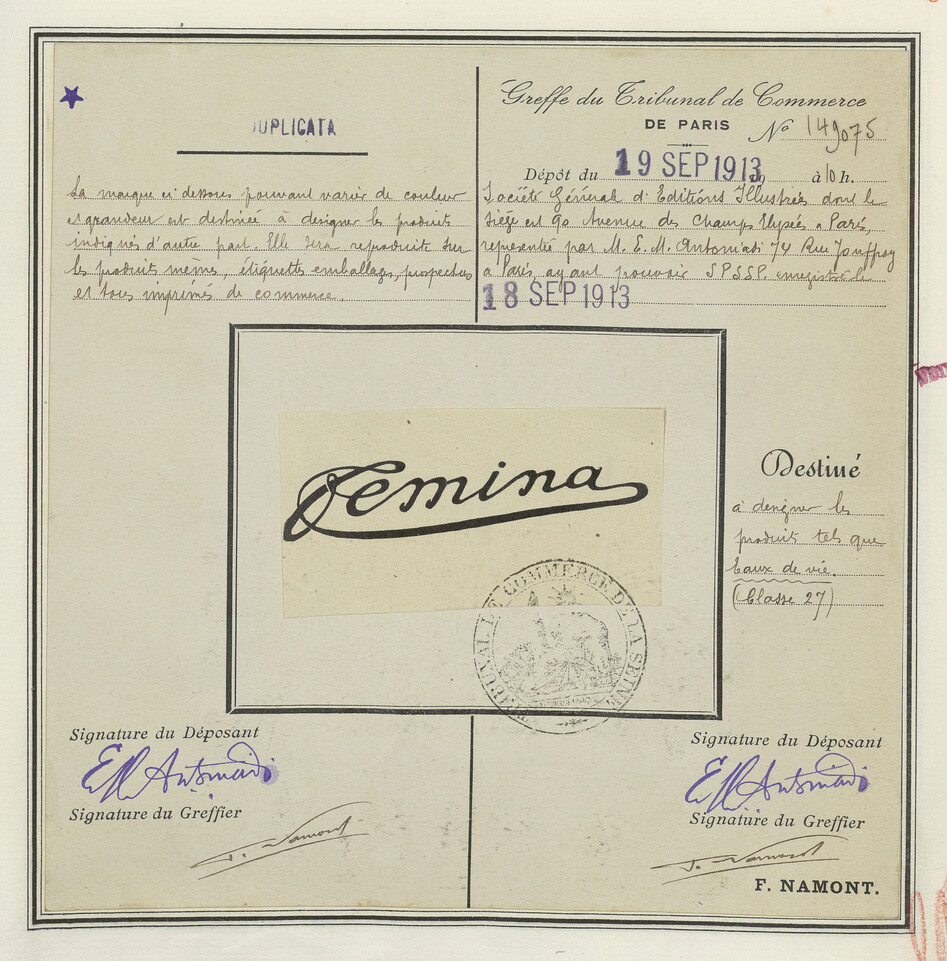 DUPLICATA
La marque ci dessous pouvant varier de couleur
et grandeur est destinée à designer les produits
indiqués d'autre part. Elle sera reproduite sur
les produits mêmes, étiquettes emballages, prospectus
et tous imprimés de commerce.
Greffe du Tribunal de Commerce
DE PARIS
No 149075
Dépôt du 19 SEP 1913 à 10 h.
Société Général d'Editions Illustrées dont le
siège est 90 Avenue des Champs Elysée a Paris,
representée par M. E. M. Antoniadi 74 Rue Jouffroy
a Paris, ayant pouvoir S.P.S.S.P. enregistré le
18 SEP 1913
Femina
TRIBUNAL DE COMMERCE DE LA SEINE
Destiné
à designer les
produits tels que
Eaux de vie.
(Classe 27)
Signature du Déposant
E M Antoniadi
Signature du Greffier
F. Namont
Signature du Déposant
E M Antoniadi
Signature du Greffier
F. Namont
F. NAMONT.